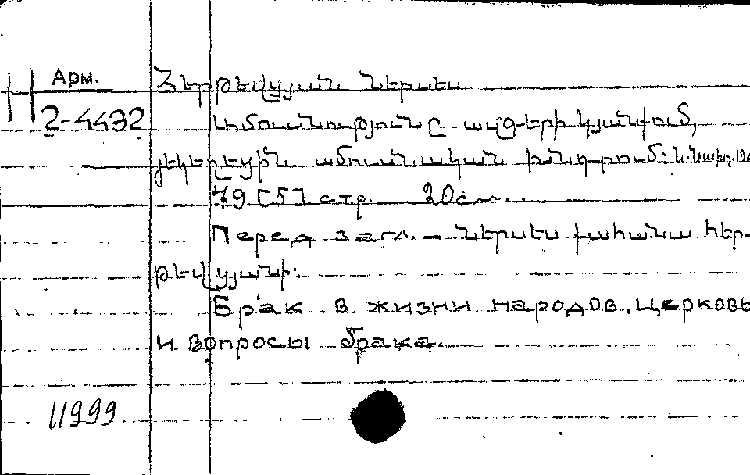 Арм.
2-4432
Հերթեվցյան Ներսես
Ամուսնությունը ազգերի կյանքում,
եկեղեցին ամուսնական խնդրում: Ն.Նախ.
79 [5] стр. 20см.
Перед загл. – Ներսես քահանա Հեր-
թեվցյանի.
Брак в жизни народов, церковь
и вопросы брака.
11999